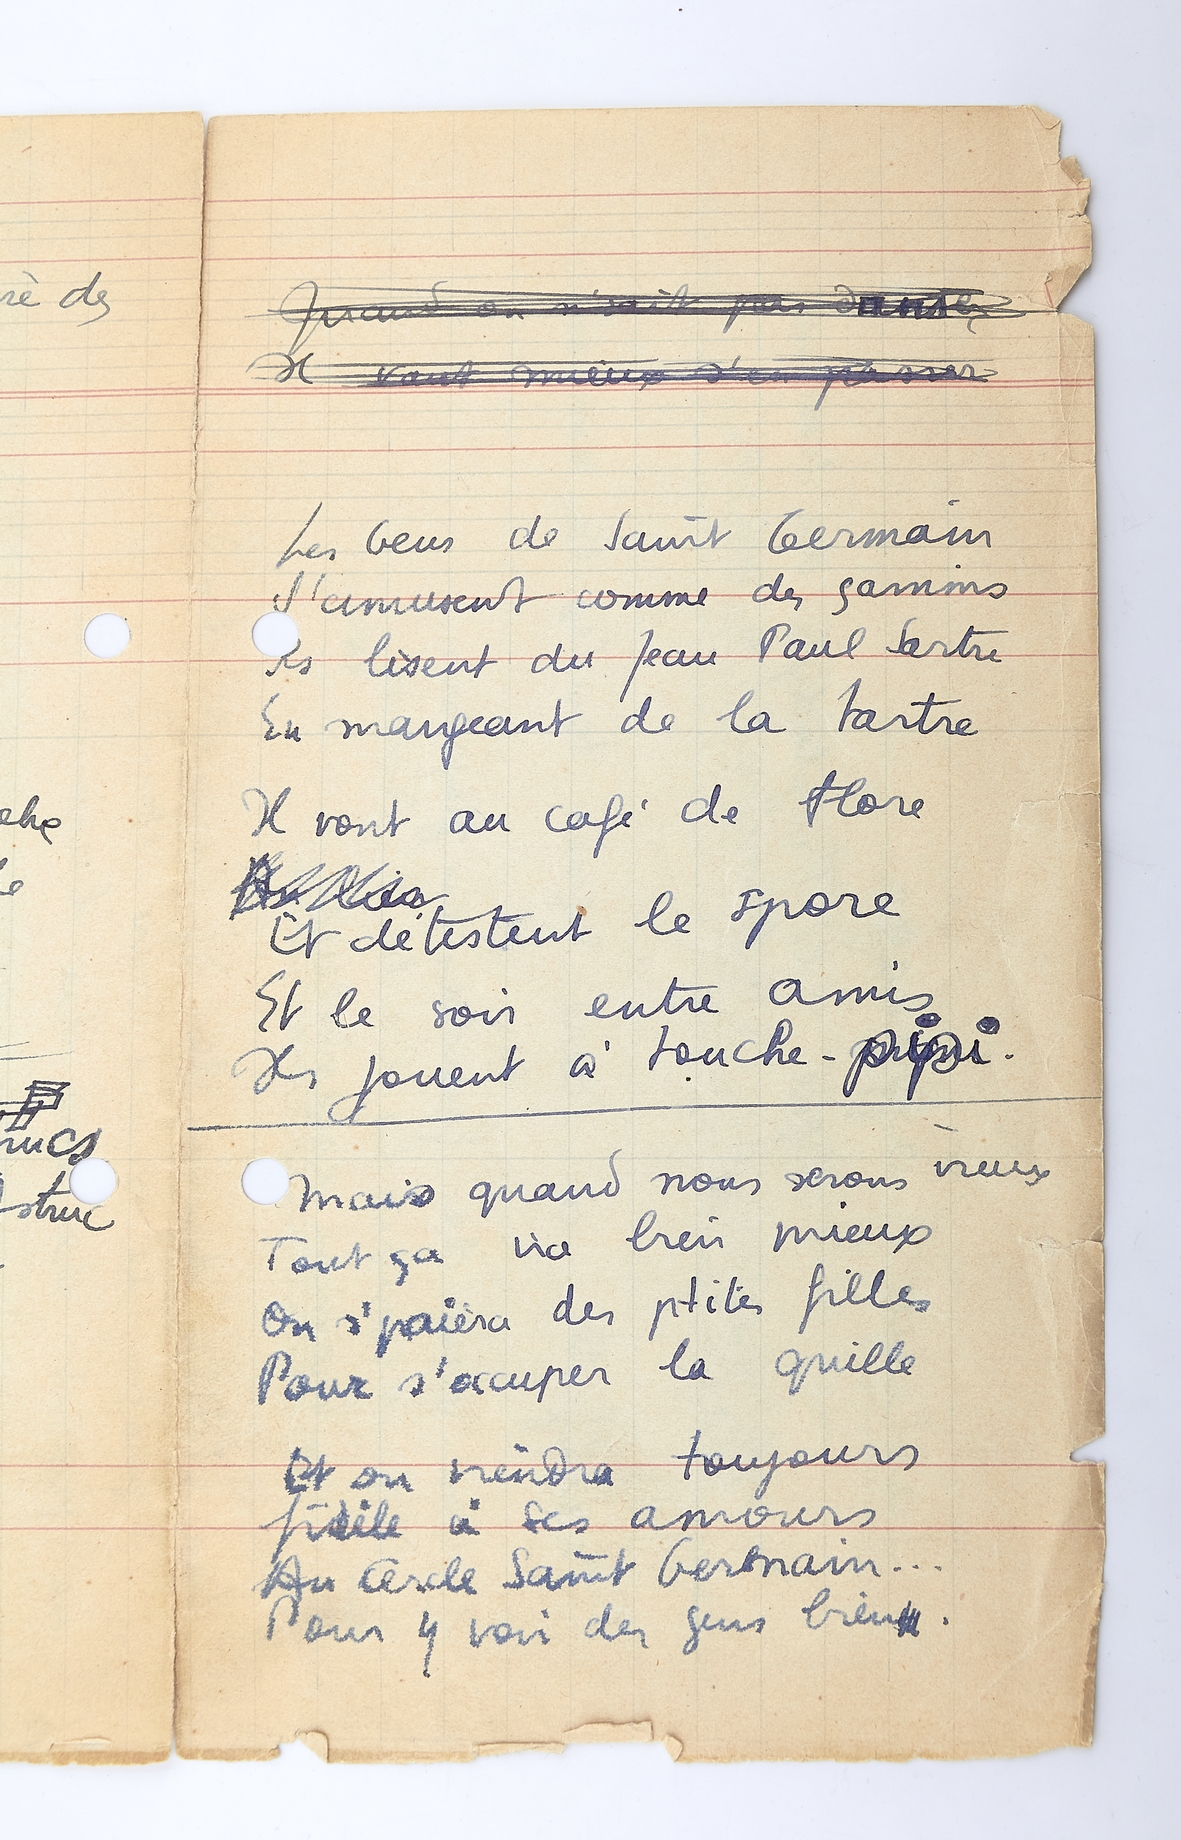 rè des
che
le
rucs
Astruc
Quand on n'sait pas danser
Il vaut mieux s'en passer
Les Gens de Saint Germain
S'amusent comme des gamins
Ils lisent du Jean Paul Sartre
En mangeant de la tartre
Il vont au café de Flore
Et détestent le spore
Et le soir entre amis
Ils jouent à touche-pipi.
Mais quand nous serons vieux
Tout ça ira bien mieux
On s'paiera des ptites filles
Pour s'occuper la quille
Et on viendra toujours
fidèle à ses amours
Au Cercle Saint Germain...
Pour y voir des gens bien.